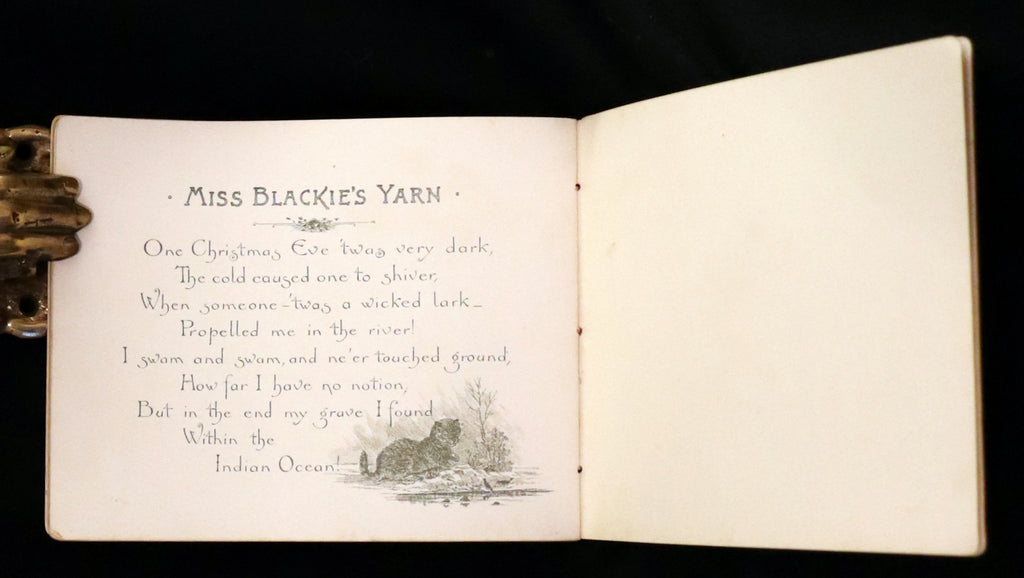 · MISS BLACKIE'S YARN ·
One Christmas Eve 'twas very dark,
The cold caused one to shiver,
When someone-'twas a wicked lark-
Propelled me in the river!
I swam and swam, and ne'er touched ground,
How far I have no notion,
But in the end my grave I found
Within the
Indian Ocean!